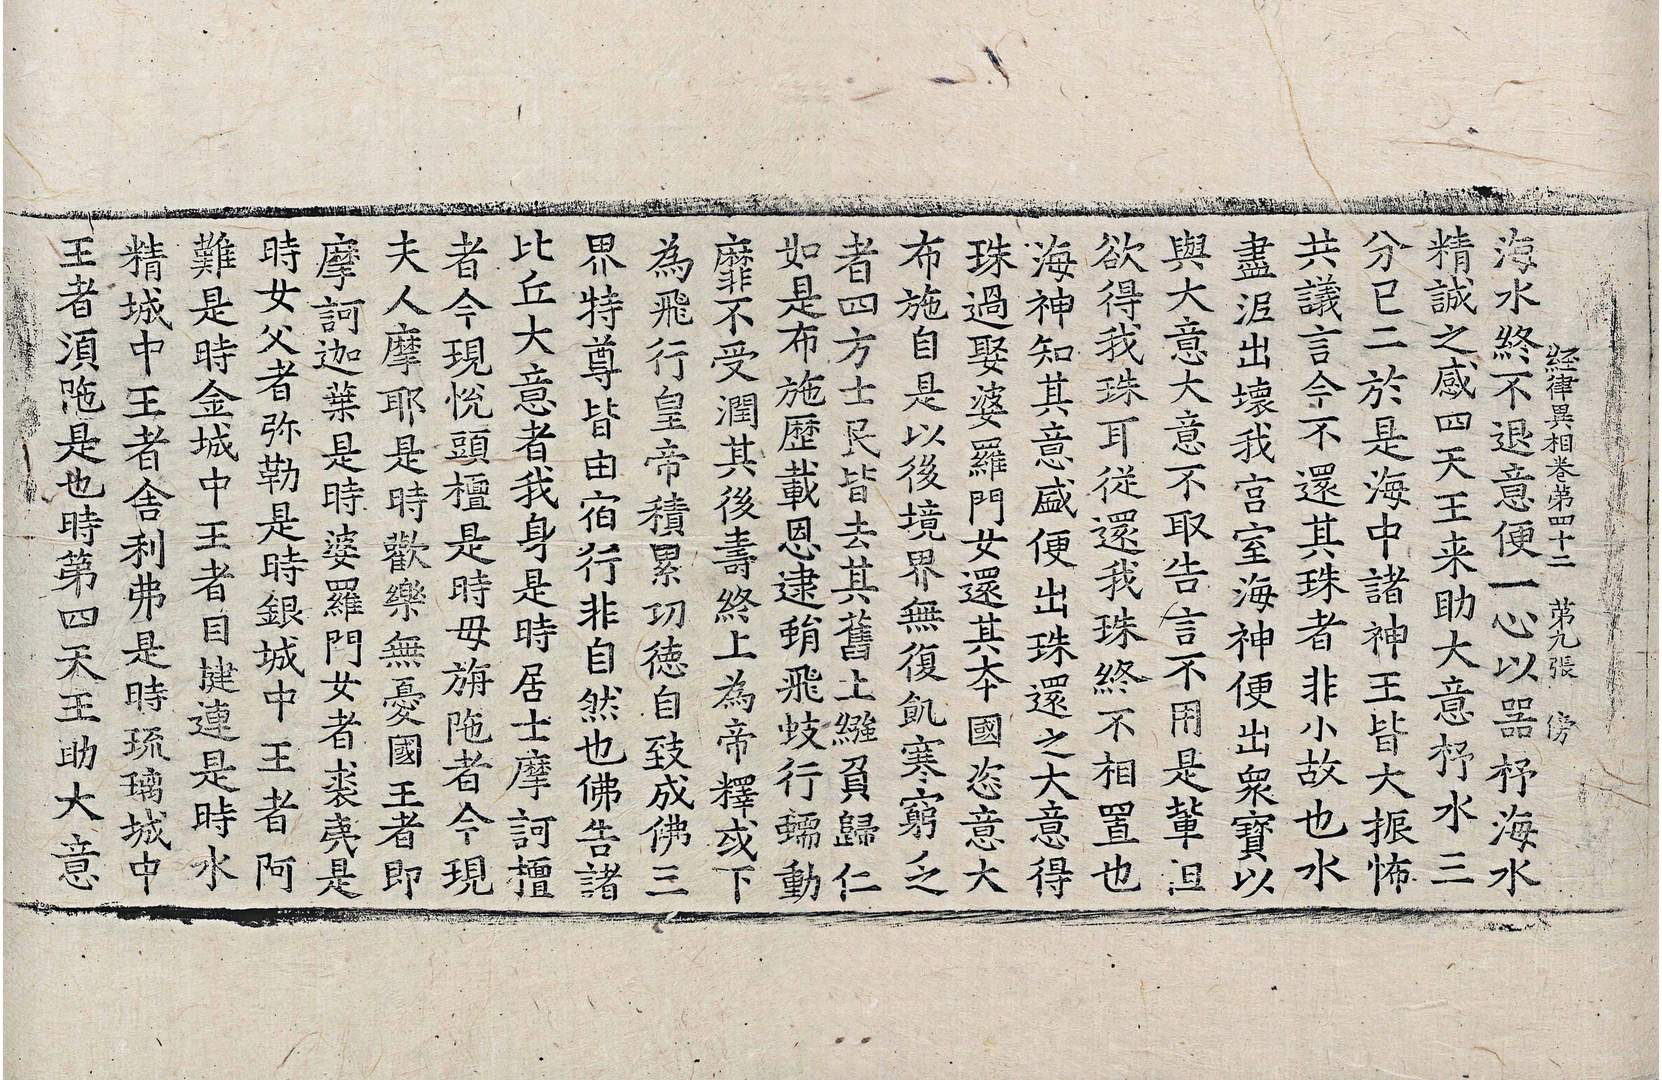 經律異相卷第四十二 第九張 傍
海水終不退意便一心以器抒海水
精誠之感四天王来助大意抒水三
分已二於是海中諸神王皆大振怖
共議言今不還其珠者非小故也水
盡泥出壞我宫室海神便出衆寳以
與大意大意不取告言不用是輩但
欲得我珠耳従還我珠終不相置也
海神知其意盛便出珠還之大意得
珠過娶婆羅門女還其夲國恣意大
布施自是以後境界無復飢寒窮乏
者四方士民皆去其舊土繦負歸仁
如是布施歷載恩逮蜎飛蚑行蠕動
靡不受潤其後壽終上為帝釋或下
為飛行皇帝積累功德自致成佛三
界特尊皆由宿行非自然也佛告諸
比丘大意者我身是時居士摩訶檀
者今現悦頭檀是時母旃陁者今現
夫人摩耶是時歡樂無憂國王者即
摩訶迦葉是時婆羅門女者裘夷是
時女父者弥勒是時銀城中王者阿
難是時金城中王者目揵連是時水
精城中王者舎利弗是時琉璃城中
王者湏陁是也時第四天王助大意